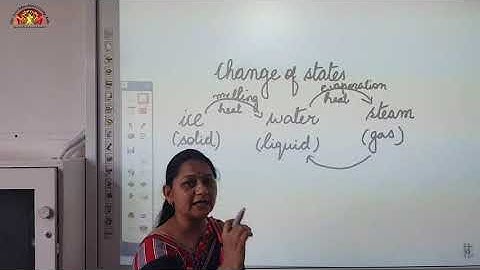 Change of states
melting evaporation
heat heat
ice water steam
(solid) (liquid) (gas)